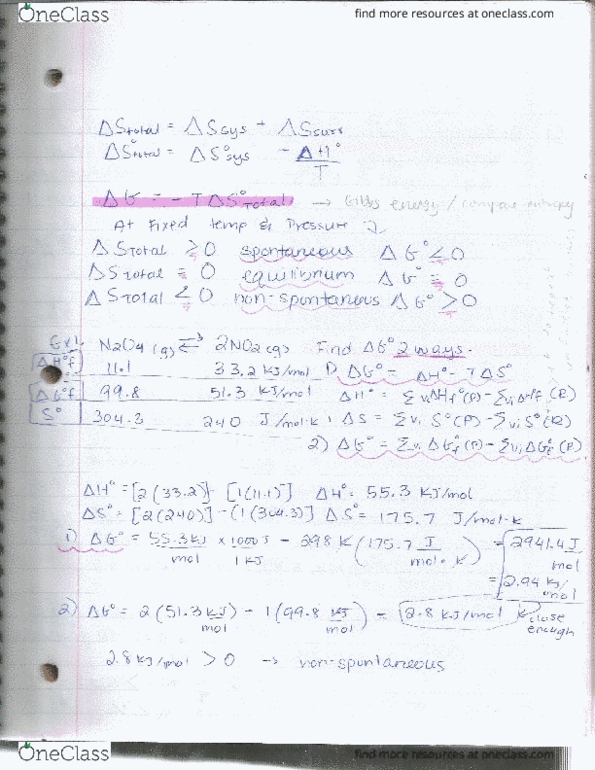 OneClass
find more resources at oneclass.com
ΔStotal = ΔSsys + ΔSsurr
ΔS°total = ΔS°sys - ΔH°/T
ΔG = -TΔS°total → Gibbs energy / compare entropy
At fixed temp & Pressure
ΔStotal > 0 spontaneous ΔG° < 0
ΔStotal = 0 equilibrium ΔG° = 0
ΔStotal < 0 non-spontaneous ΔG° > 0
Ex1. N2O4 (g) ⇌ 2NO2 (g) Find ΔG° 2 ways.
ΔH°f 11.1 33.2 KJ/mol 1) ΔG° = ΔH° - TΔS°
ΔG°f 99.8 51.3 KJ/mol ΔH° = Σvi ΔH°f (P) - Σvi ΔH°f (R)
S° 304.3 240 J/mol·k ΔS = Σvi S°(P) - Σvi S°(R)
2) ΔG° = Σvi ΔG°f (P) - Σvi ΔG°f (R)
ΔH° = [2(33.2)] - [1(11.1)] ΔH° = 55.3 KJ/mol
ΔS° = [2(240)] - (1(304.3)] ΔS° = 175.7 J/mol·k
1) ΔG° = 55.3KJ/mol x 1000J/1KJ - 298K (175.7 J/mol·K) = 2941.4 J/mol
= 2.94 KJ/mol
2) ΔG° = 2(51.3 KJ/mol) - 1(99.8 KJ/mol) = 2.8 KJ/mol close enough
2.8 KJ/mol > 0 → non-spontaneous
OneClass
find more resources at oneclass.com